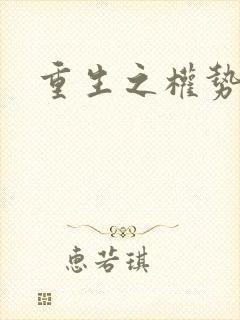 重生之權勢
惠若琪